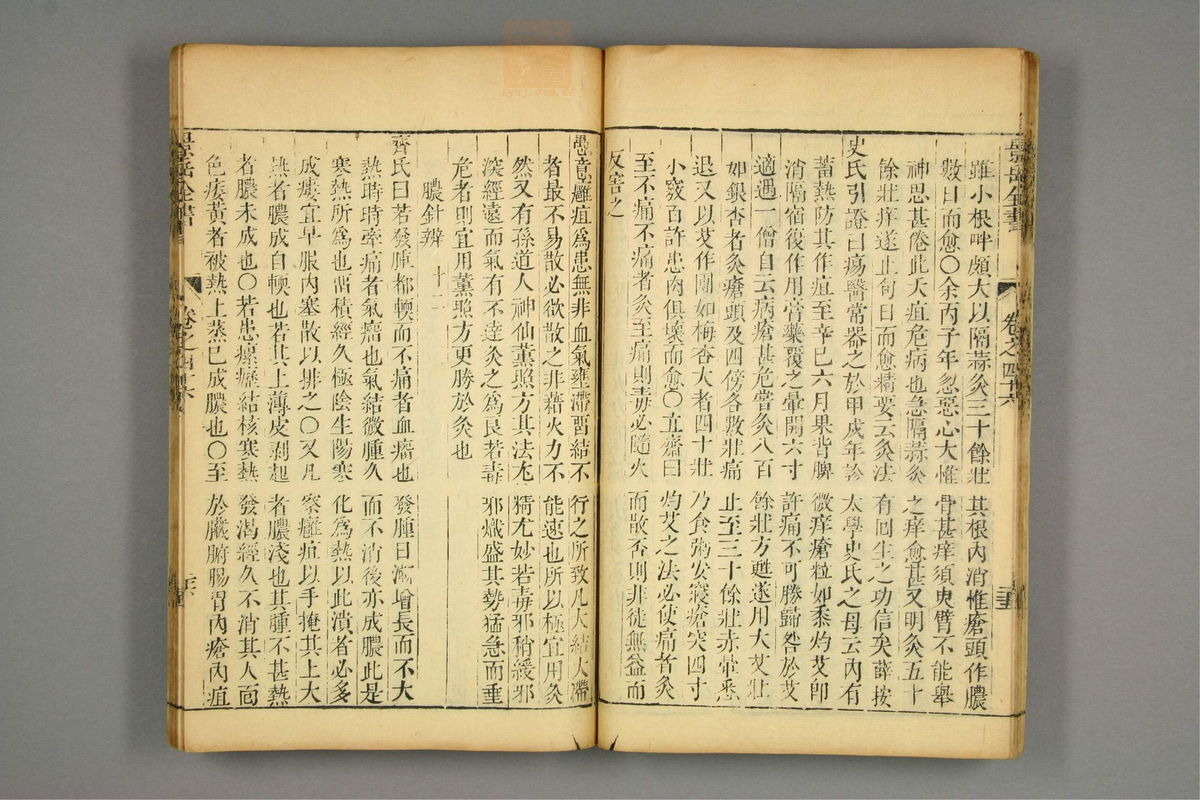 景岳全書
卷之四十六
雖小根畔頗大以隔蒜灸三十餘壯其根內消惟瘡頭作膿
數日而愈〇余丙子年忽惡心大椎骨甚痒須臾臂不能舉
神思甚倦此夭疽危病也急隔蒜灸之痒愈甚又明灸五十
餘壯痒遂止旬日而愈精要云灸法有回生之功信矣薛按
史氏引證曰瘍醫常器之於甲戌年診太學史氏之母云內有
蓄熱防其作疽至辛巳六月果背脾微痒瘡粒如黍灼艾卽
消隔宿復作用膏藥覆之暈開六寸許痛不可勝歸咎於艾
適遇一僧自云病瘡甚危嘗灸八百餘壯方甦遂用大艾壯
如銀杏者灸瘡頭及四傍各數壯痛止至三十餘壯赤暈悉
退又以艾作團如梅杏大者四十壯乃食粥安寢瘡突四寸
小竅百許患肉俱壞而愈〇立齋曰灼艾之法必使痛者灸
至不痛不痛者灸至痛則毒必隨火而散否則非徒無益而
反害之
愚意癰疽爲患無非血氣壅滯畱結不行之所致凡大結大滯
者最不易散必欲散之非藉火力不能速也所以極宜用灸
然又有孫道人神仙薰照方其法尤精尤妙若毒邪稍緩邪
深經遠而氣有不達灸之爲良若毒邪熾盛其勢猛急而垂
危者則宜用薰照方更勝於灸也
膿針辨 十二
齊氏曰若發腫都輭而不痛者血瘤也發腫日漸增長而不大
熱時時牽痛者氣瘤也氣結微腫久而不消後亦成膿此是
寒熱所爲也畱積經久極陰生陽寒化爲熱以此潰者必多
成瘻宜早服內塞散以排之〇又凡察癰疽以手掩其上大
熱者膿成自輭也若其上薄皮剥起者膿淺也其腫不甚熱
者膿未成也〇若患瘰癧結核寒熱發渴經久不消其人面
色痿黃者被熱上蒸已成膿也〇至於臟腑腸胃內瘡內疽
景岳全書
卷之四十六